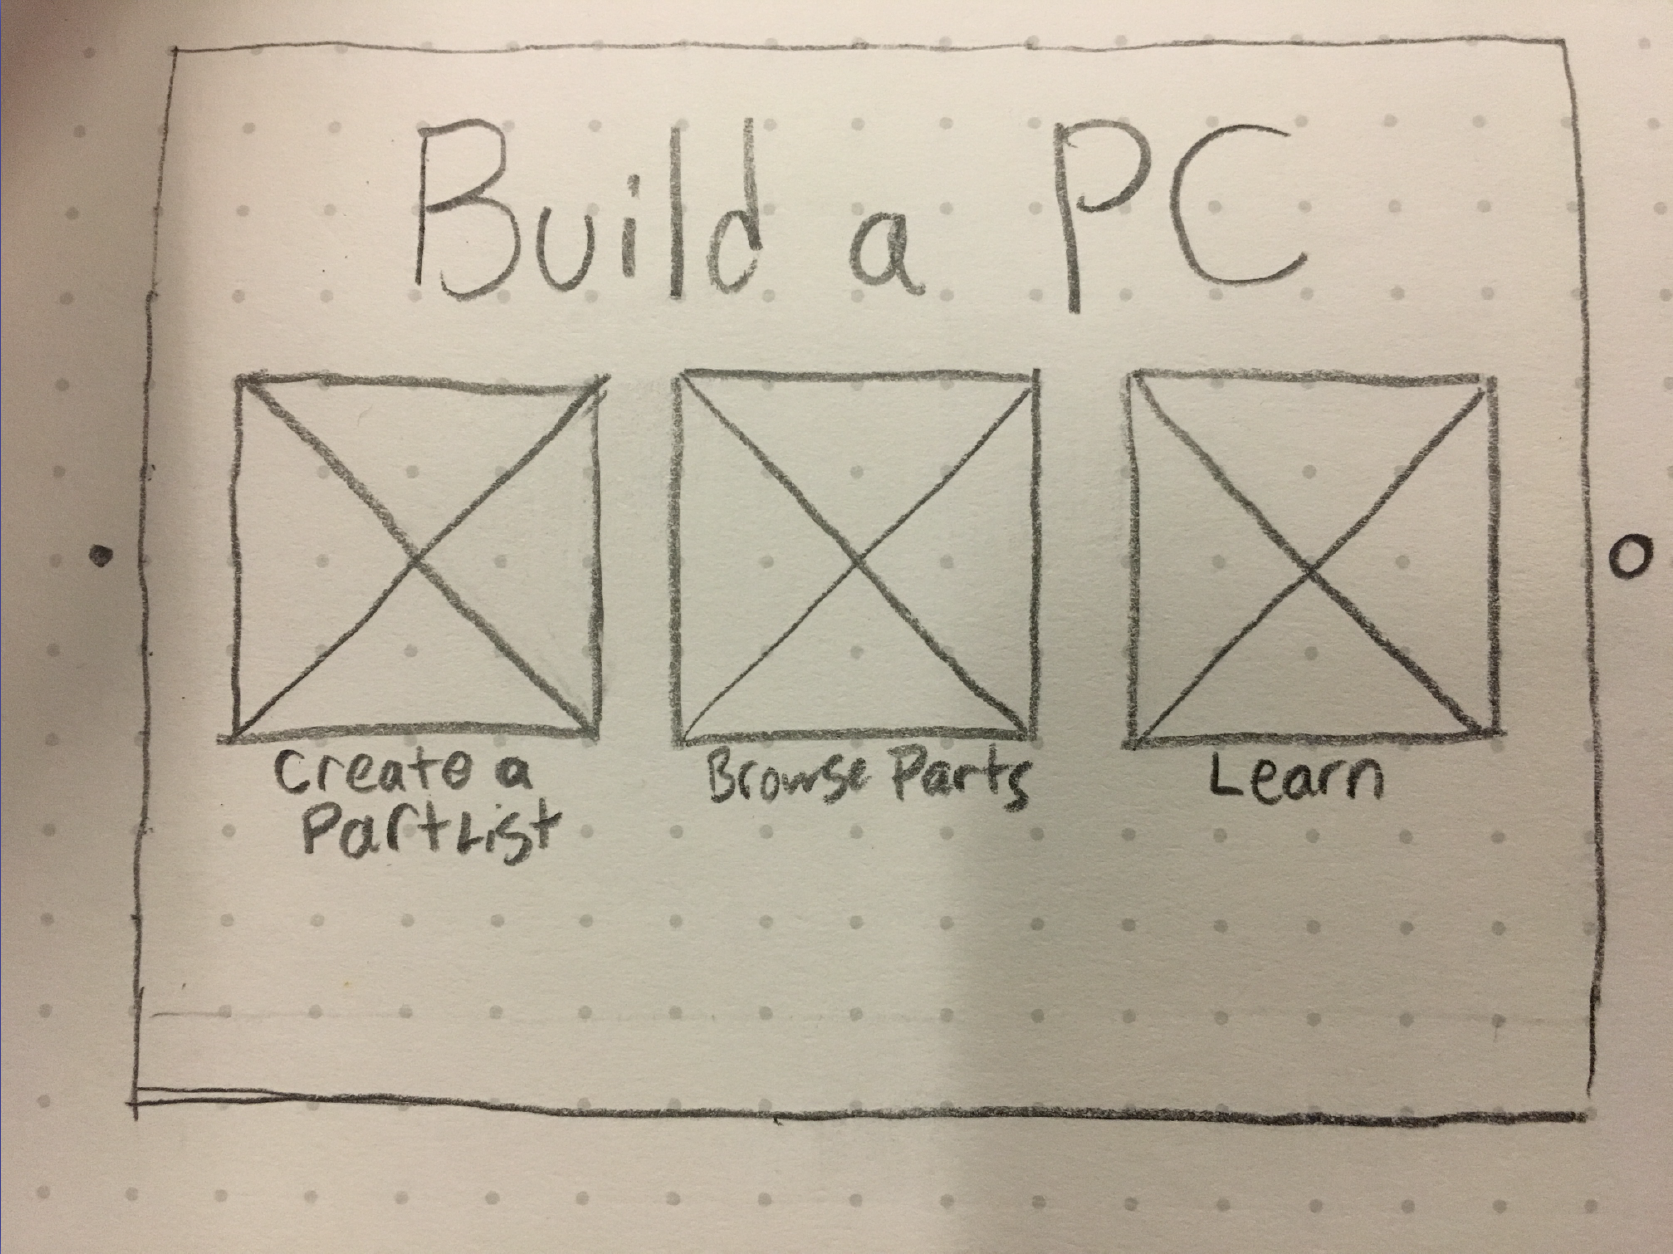 Build a PC
Create a
Part List
Browse Parts
Learn